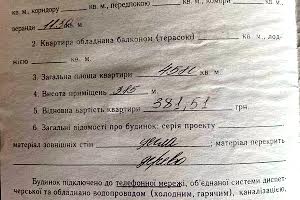 кв. м., коридору кв. м., передпокою кв. м., комори кв. м.,
веранди кв. м.
2. Квартира обладнана балконом (терасою) кв. м., лод-
жією кв. м.
3. Загальна площа квартири кв. м.
4. Висота приміщень м.
5. Відновна вартість квартири 381,51 грн.
6. Загальні відомості про будинок: серія проекту
матеріал зовнішніх стін матеріал перекрить
дерево
Будинок підключено до телефонної мережі, об'єднаної системи диспет-
черської та обладнано водопроводом (холодним, гарячим), каналізацією,